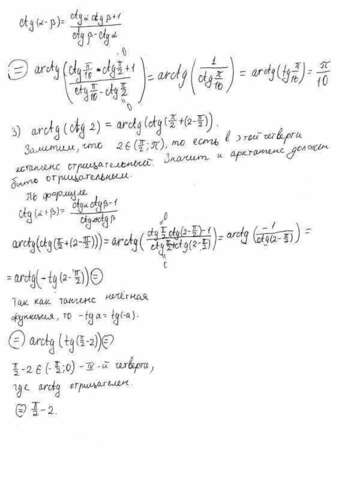 ctg(α-β)= (ctgα ctgβ+1)/(ctgβ-ctgα)
= arctg((ctg π/10 · ctg π/2 +1)/(ctg π/10 - ctg π/2)) = arctg(1/(ctg π/10)) = arctg(tg π/10) = π/10
3) arctg(ctg 2) = arctg(ctg(π/2+(2-π/2))).
Заметим, что 2∈(π/2; π), то есть в этой четверти
котангенс отрицательный. Значит и арктангенс должен
быть отрицательным.
По формуле
ctg(α+β)= (ctgα ctgβ-1)/(ctgα+ctgβ)
arctg(ctg(π/2+(2-π/2))) = arctg((ctg π/2 ctg(2-π/2)-1)/(ctg π/2+ctg(2-π/2))) = arctg(-1/(ctg(2-π/2))) =
= arctg(-tg(2-π/2)) =
Так как тангенс нечётная
функция, то -tgα=tg(-α).
= arctg(tg(π/2-2)) =
π/2-2∈(-π/2;0) - IV-й четверти,
где arctg отрицателен.
= π/2-2.